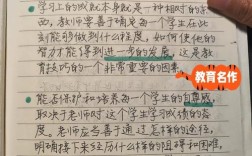 学习上的成就本身就是一种相对的东
西,教师要善于确定每一个学生在此
刻能够做到什么程度,如何使他的
智力才能得到进一步的发展,这是教
育技巧的一个非常重要的因素。
教育名作
能否保护和培养每一个学生的自尊感,
取决于老师对这个学生学习成绩的态
度。老师应当善于通过怎样的途径,
明确接下来经历什么样的阻碍和困难,